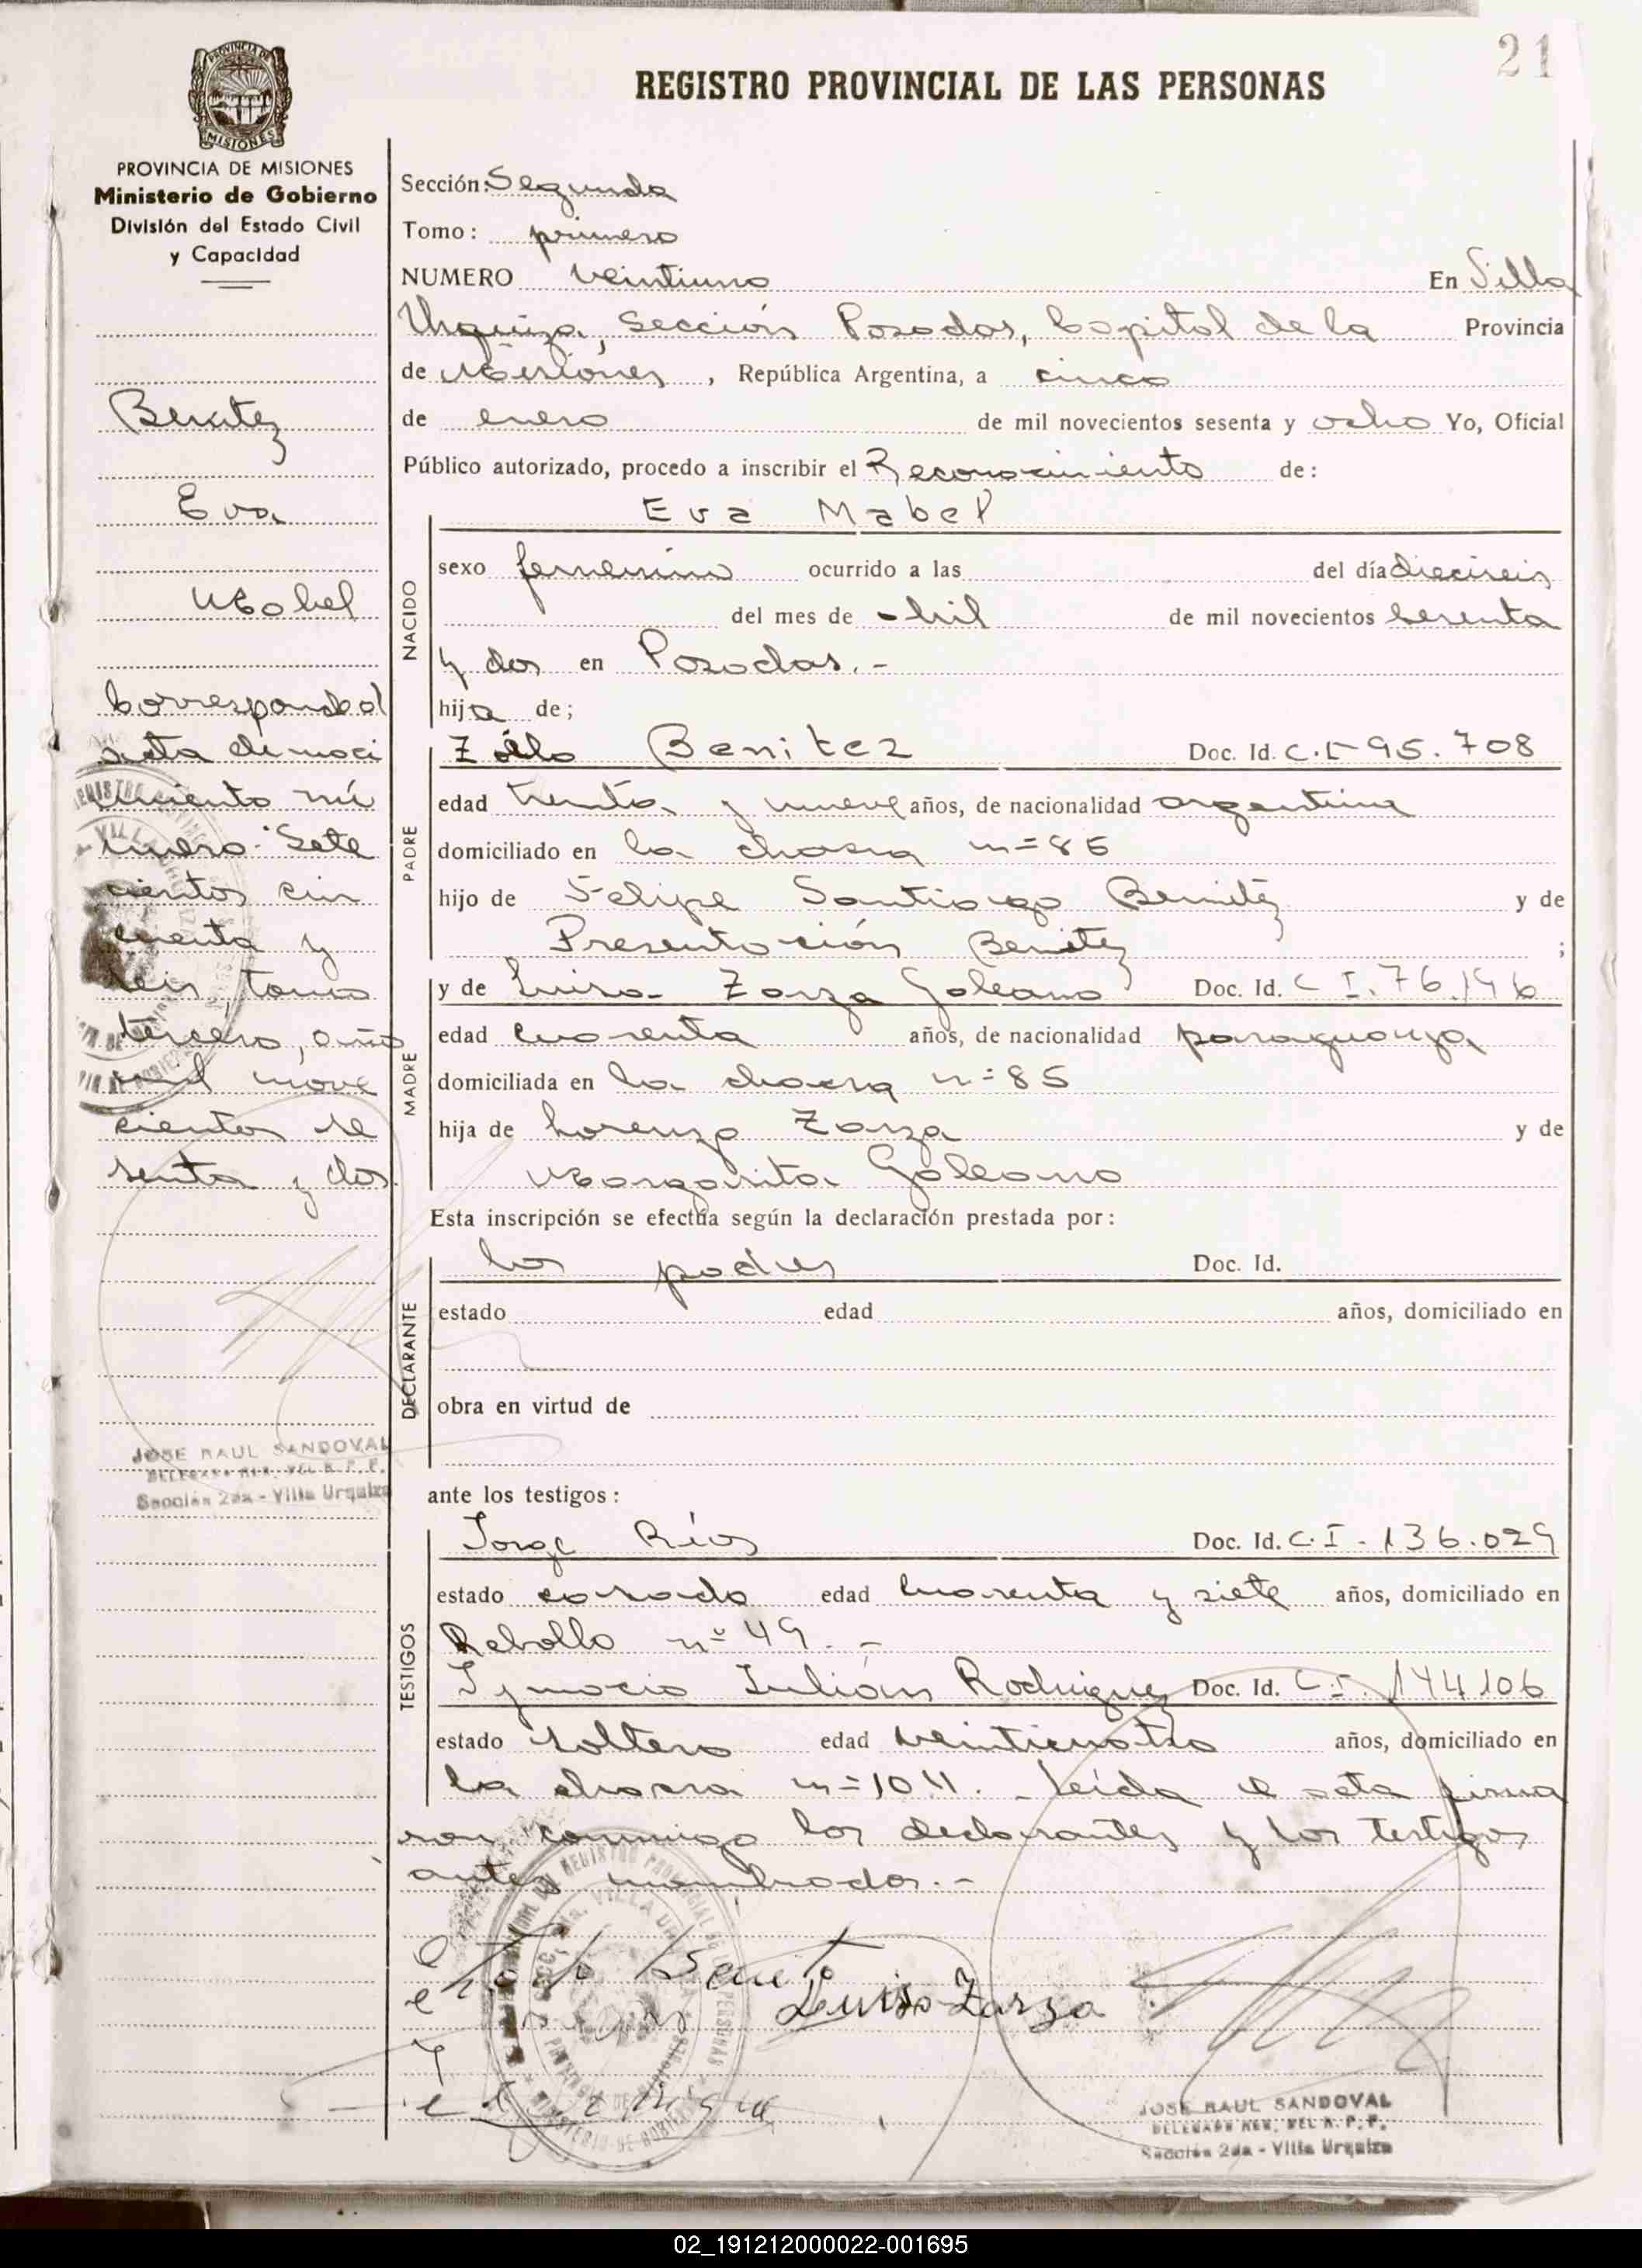 21
REGISTRO PROVINCIAL DE LAS PERSONAS
PROVINCIA DE MISIONES
MISIONES
PROVINCIA DE MISIONES
Ministerio de Gobierno
División del Estado Civil
y Capacidad
Benitez
Eva
Mabel
Corresponde al
acta de naci
miento nú
mero: Sete
cientos cin
cuenta y
seis, tomo
tercero, año
mil nove
cientos se
senta y dos.
JOSE RAUL SANDOVAL
Sección 2da - Villa Urquiza
Sección: Segunda
Tomo: primero
NUMERO veintiuno En Villa
Urquiza, Sección Posadas, Capital de la Provincia
de Misiones, República Argentina, a cinco
de enero de mil novecientos sesenta y ocho Yo, Oficial
Público autorizado, procedo a inscribir el Reconocimiento de:
Eva Mabel
NACIDO
sexo femenino ocurrido a las del día dieciseis
del mes de abril de mil novecientos sesenta
y dos en Posadas.-
hija de;
PADRE
Zóilo Benitez Doc. Id. C.I- 95.708
edad treinta y nueve años, de nacionalidad argentina
domiciliado en la chacra nº 85
hijo de Felipe Santiago Benitez y de
Presentación Benitez ;
MADRE
y de Luisa Zarza Galeano Doc. Id. C I. 76.146
edad cuarenta años, de nacionalidad paraguaya
domiciliada en la chacra nº 85
hija de Lorenzo Zarza y de
Margarita Galeano
Esta inscripción se efectúa según la declaración prestada por:
DECLARANTE
los padres Doc. Id.
estado edad años, domiciliado en
obra en virtud de
ante los testigos:
TESTIGOS
Jorge Ríos Doc. Id. C.I - 136.029
estado casado edad cuarenta y siete años, domiciliado en
Rebollo nº 49. -
Ignacio Julián Rodriguez Doc. Id. C.I. 144106
estado soltero edad veinticuatro años, domiciliado en
la chacra nº 1011. - Leída el acta firma
ron conmigo los declarantes y los testigos
antes nombrados.-
Luisa Zarza
JOSE RAUL SANDOVAL
Sección 2da - Villa Urquiza
02_191212000022-001695